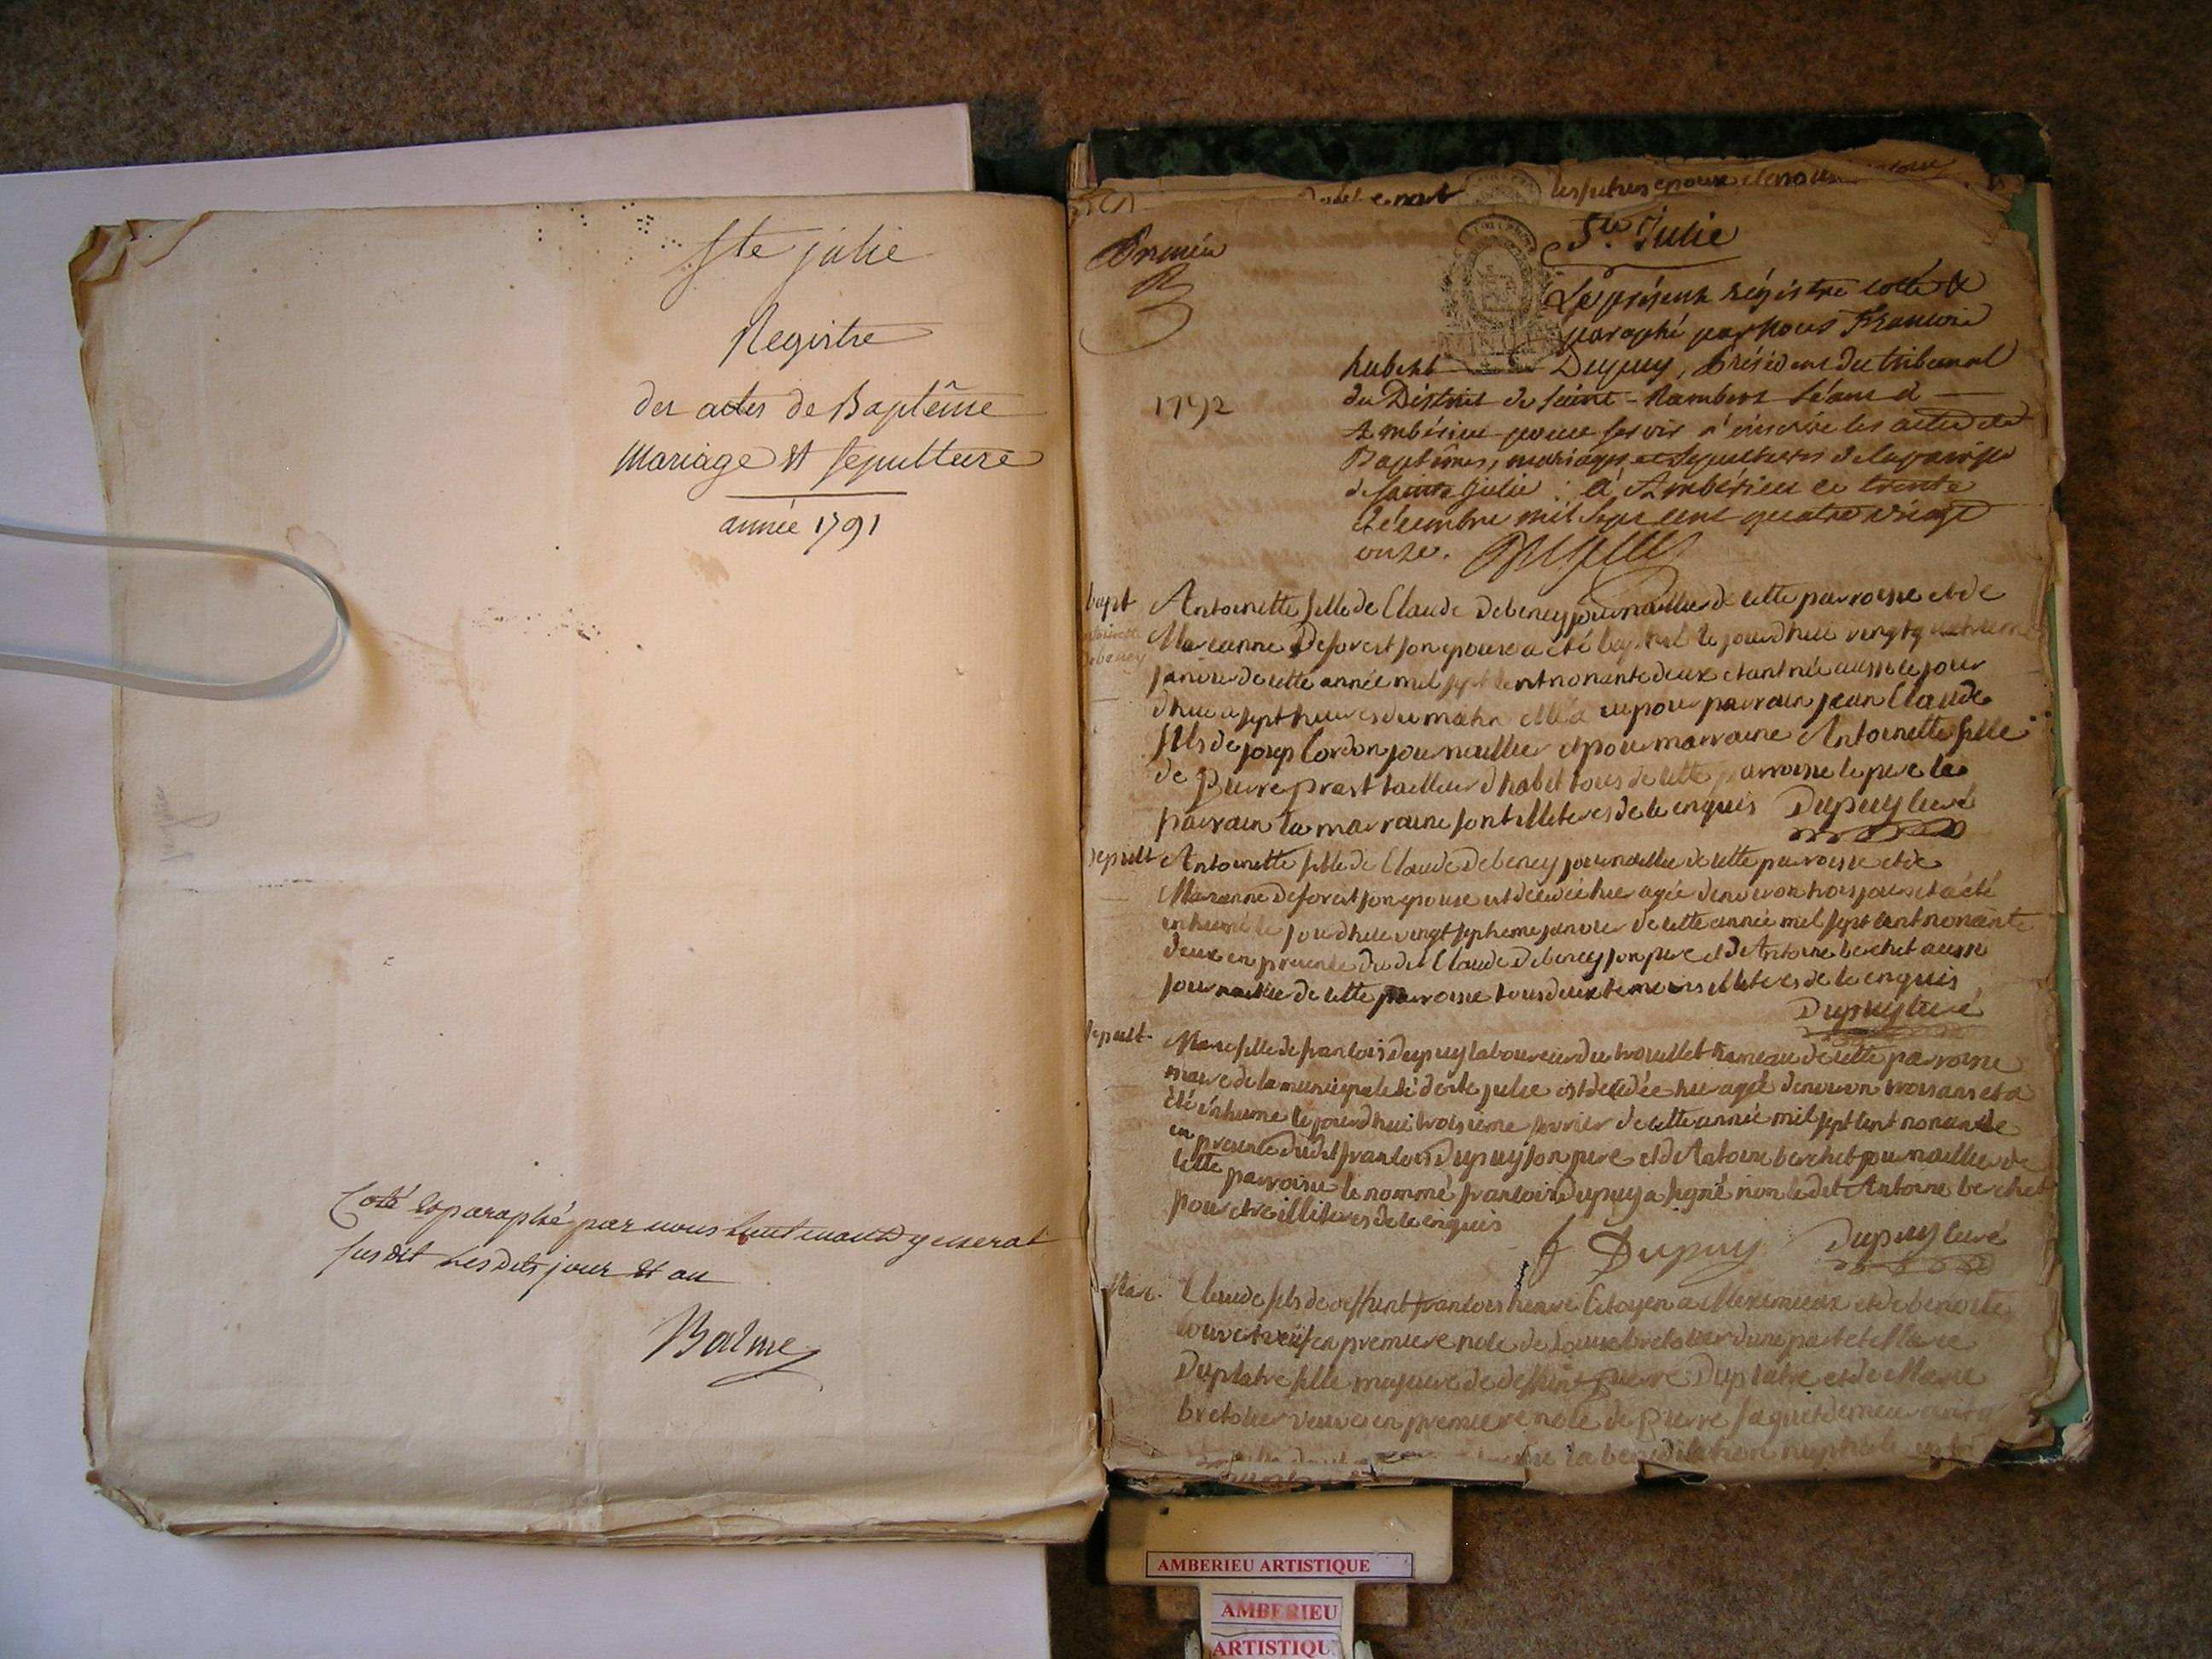 Ste julie
Registre
des actes de Baptême
Mariage et sepulture
année 1791
Coté et paraphé par nous lieutenant general
susdit lesdits jour et an
Balme
les futurs epoux
Premier
Ste Julie
Le présent régistre cotté &
paraphé par Nous François
hubert Dupuy, Président du tribunal
1792
du District de Saint-Rambert séant à
Ambérieu pour servir à inscrire les actes de
Baptêmes, mariages et sepultures de la paroisse
de sainte Julie : à Ambérieu ce trente
décembre mil sept cent quatre vingt
onze.
bapt
antoinette
debeney
Antoinette fille de Claude Debeney journaillier de cette parroisse et de
Marianne Deforest son epouse a été baptisé le jourdhui vingt quatrieme
janvier de cette année mil sept cent nonante deux etant née aussi le jour
dhui a sept heures du matin elle a eu pour parrain jean Claude
fils de josep Cordon journaillier et pour marraine Antoinette fille
de Pierre prast tailleur dhabit tous de cette parroisse le pere le
parrain la marraine sont illiteres de ce enquis Dupuy curé
sepult
Antoinette fille de Claude Debeney journaillier de cette parroisse et de
Marianne Deforest son epouse est decedée hier agée denviron trois jours et a été
inhumé le jourdhui vingt septieme janvier de cette année mil sept cent nonante
deux en presence du dit Claude Debeney son pere et de Antoine berchet aussi
journaillier de cette parroisse tous deux temoins illiteres de ce enquis
Dupuy curé
sepult
Marie fille de francois Dupuy laboureur du trouillet hameau de cette parroisse
maire de la municipalité de ste julie est decedée hier agée denviron trois ans et a
été inhumé le jourdhui troisieme fevrier de cette année mil sept cent nonante
en presence dudit francois Dupuy son pere et de Antoine berchet journaillier de
cette parroisse le nommé francois Dupuy a signé non le dit Antoine berchet
pour etre illiteres de ce enquis
f Dupuy Dupuy curé
Mar.
Claude fils de deffunt francois henri Citoyen a Meximieux et de benoite
veuf en premiere noce de bretolier dune part et Marie
Duplatre fille majeure de deffunt Pierre Duplatre et de Marie
bretolier veuve en premiere noce de Pierre
la benediction nuptiale
AMBERIEU ARTISTIQUE
AMBERIEU
ARTISTIQU